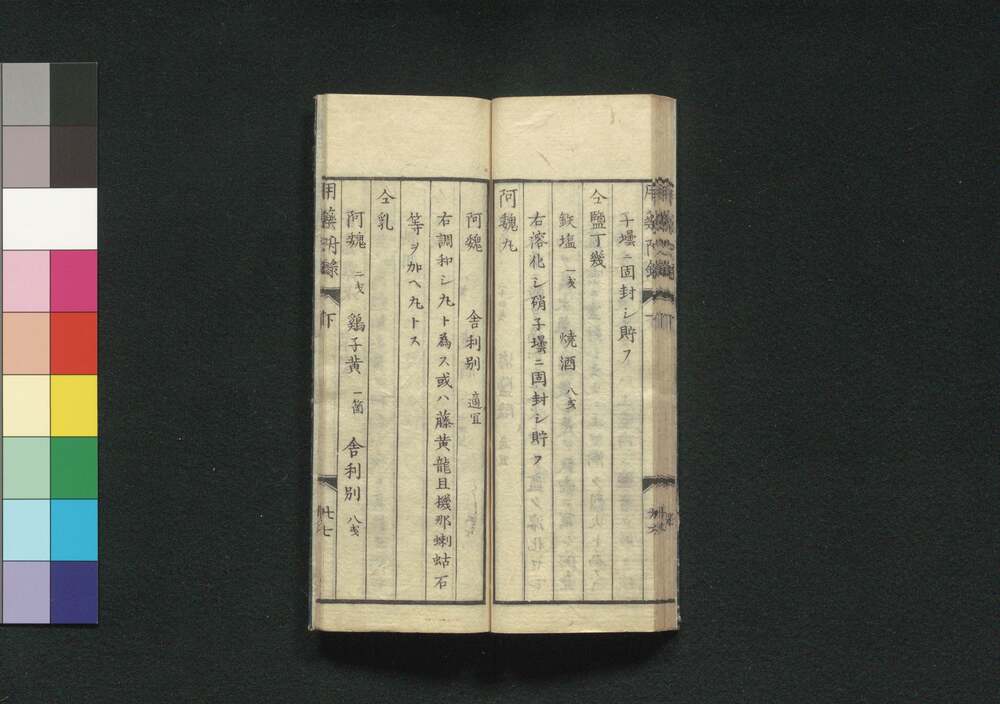 子壜ニ固封シ貯フ
仝鹽丁幾
鉄塩 一戋 焼酒 八戋
右溶化シ硝子壜ニ固封シ貯フ
阿魏丸
阿魏 舎利別 適宜
右調和シ丸ト為ス或ハ藤黄龍且機那蝲蛄石
等ヲ加ヘ丸トス
仝乳
阿魏 二戋 鶏子黄 一箇 舎利別 八戋
用藥附録 下 七七